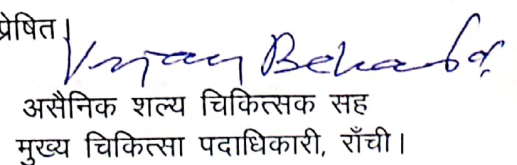 प्रेषित।
Vijay Beha
असैनिक शल्य चिकित्सक सह
मुख्य चिकित्सा पदाधिकारी, राँची।